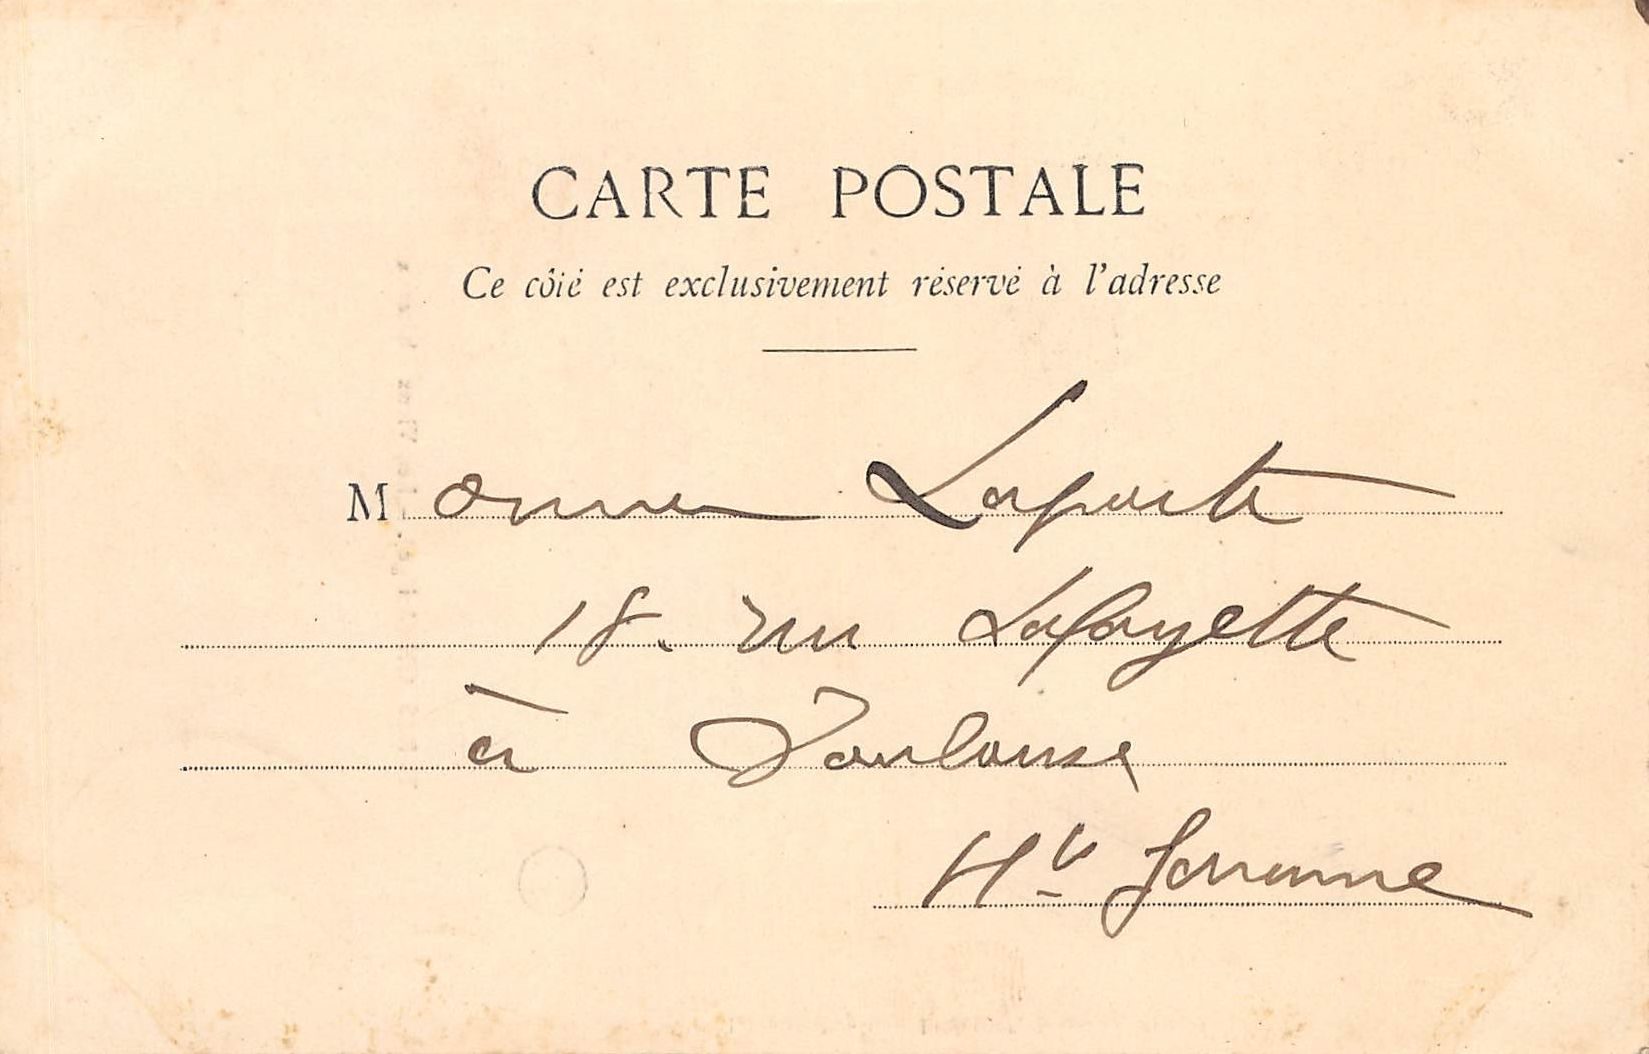 CARTE POSTALE
Ce côté est exclusivement réservé à l'adresse
Monsieur Laporte
18. rue Lafayette
à Toulouse
Hte Garonne